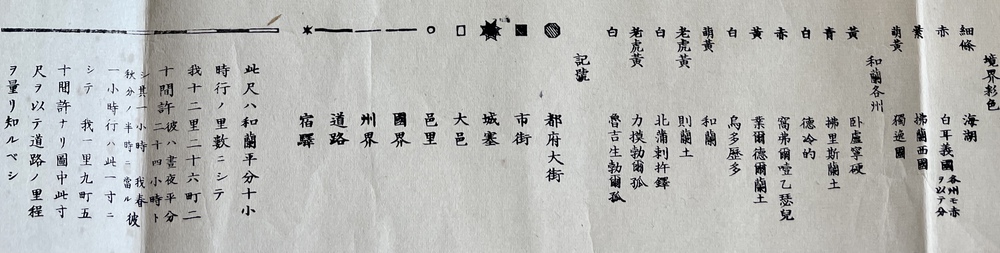 境界彩色
細條 海湖
赤 白耳義國 各州モ赤ヲ以テ分
紫 拂蘭西國
萌黃 獨逸國
和蘭各州
黃 卧盧寧硬
青 拂里斯蘭土
白 德冷的
赤 窩弗爾噎乙瑟兒
黃 葉爾德爾蘭土
白 烏多歷多
和蘭
老虎黃 則蘭土
白 北蒲剌杵鐸
老虎黃 力模勃爾孤
白 魯吉生勃爾孤
記號
都府大街
市街
城塞
大邑
邑里
國界
州界
道路
宿驛
此尺ハ和蘭平分十小
時行ノ里數ニシテ
我十二里二十六町二
十間許 彼ハ晝夜平分二十四小時トシ其一小時ハ我春秋分ノ半時ニ當ル 彼
一小時行ハ此一寸ニ
シテ我一里九町五
十間許ナリ圖中此寸
尺ヲ以テ道路ノ里程
ヲ量リ知ルベシ